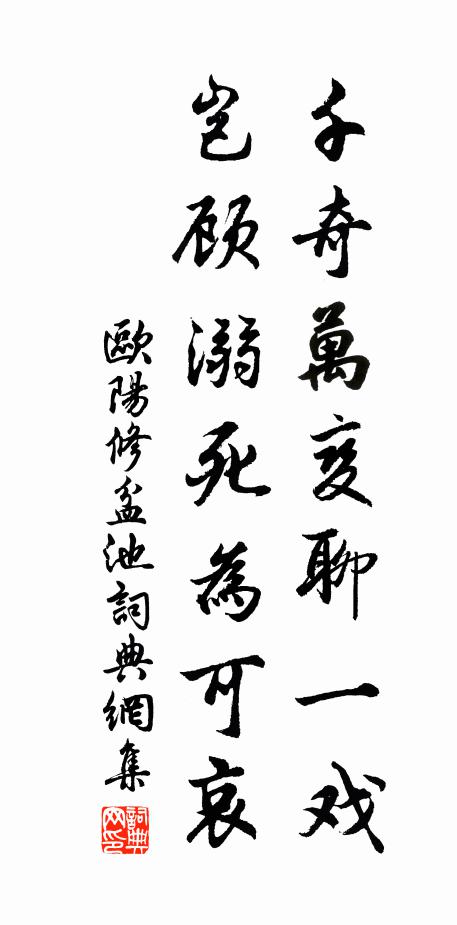 千奇萬变聊一戏
岂顾溺死為可哀
歐陽修盆池詞典網集
詞典网印